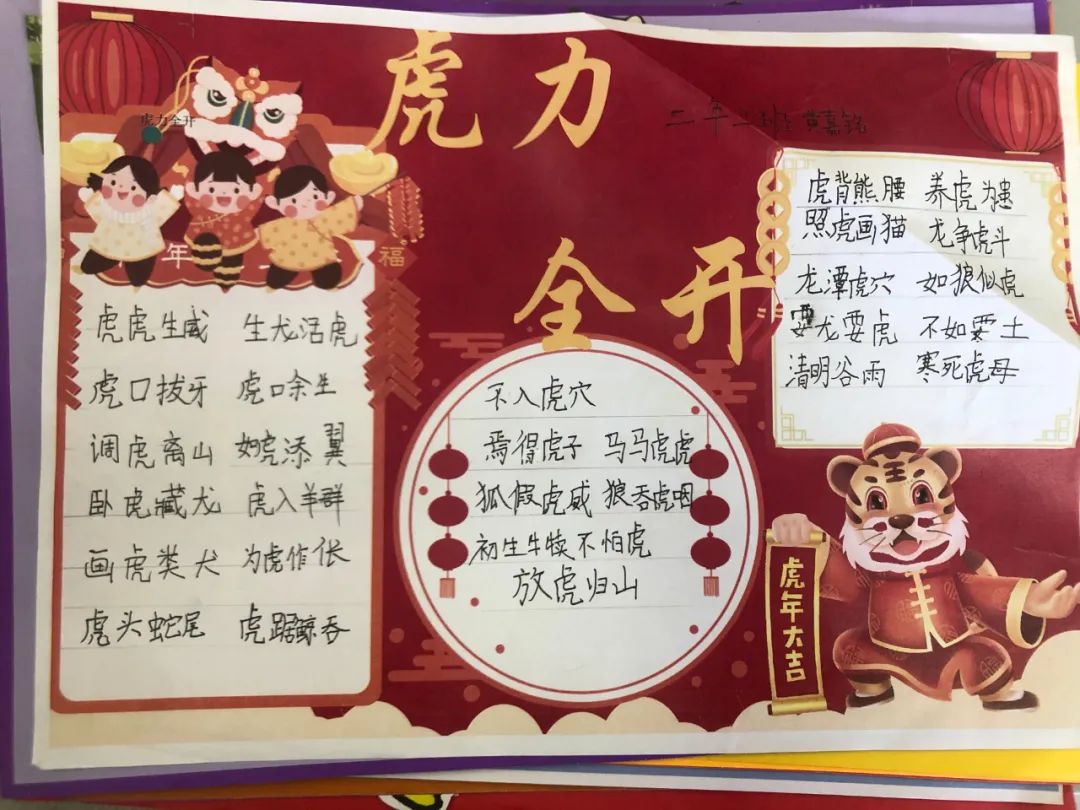 虎力
全开
虎力全开
二年二班 黄嘉铭
年
福
虎虎生威 生龙活虎
虎口拔牙 虎口余生
调虎离山 如虎添翼
卧虎藏龙 虎入羊群
画虎类犬 为虎作伥
虎头蛇尾 虎踞鲸吞
不入虎穴
焉得虎子 马马虎虎
狐假虎威 狼吞虎咽
初生牛犊不怕虎
放虎归山
虎背熊腰 养虎为患
照虎画猫 龙争虎斗
龙潭虎穴 如狼似虎
耍龙耍虎 不如耍土
清明谷雨 寒死虎母
王
虎年大吉